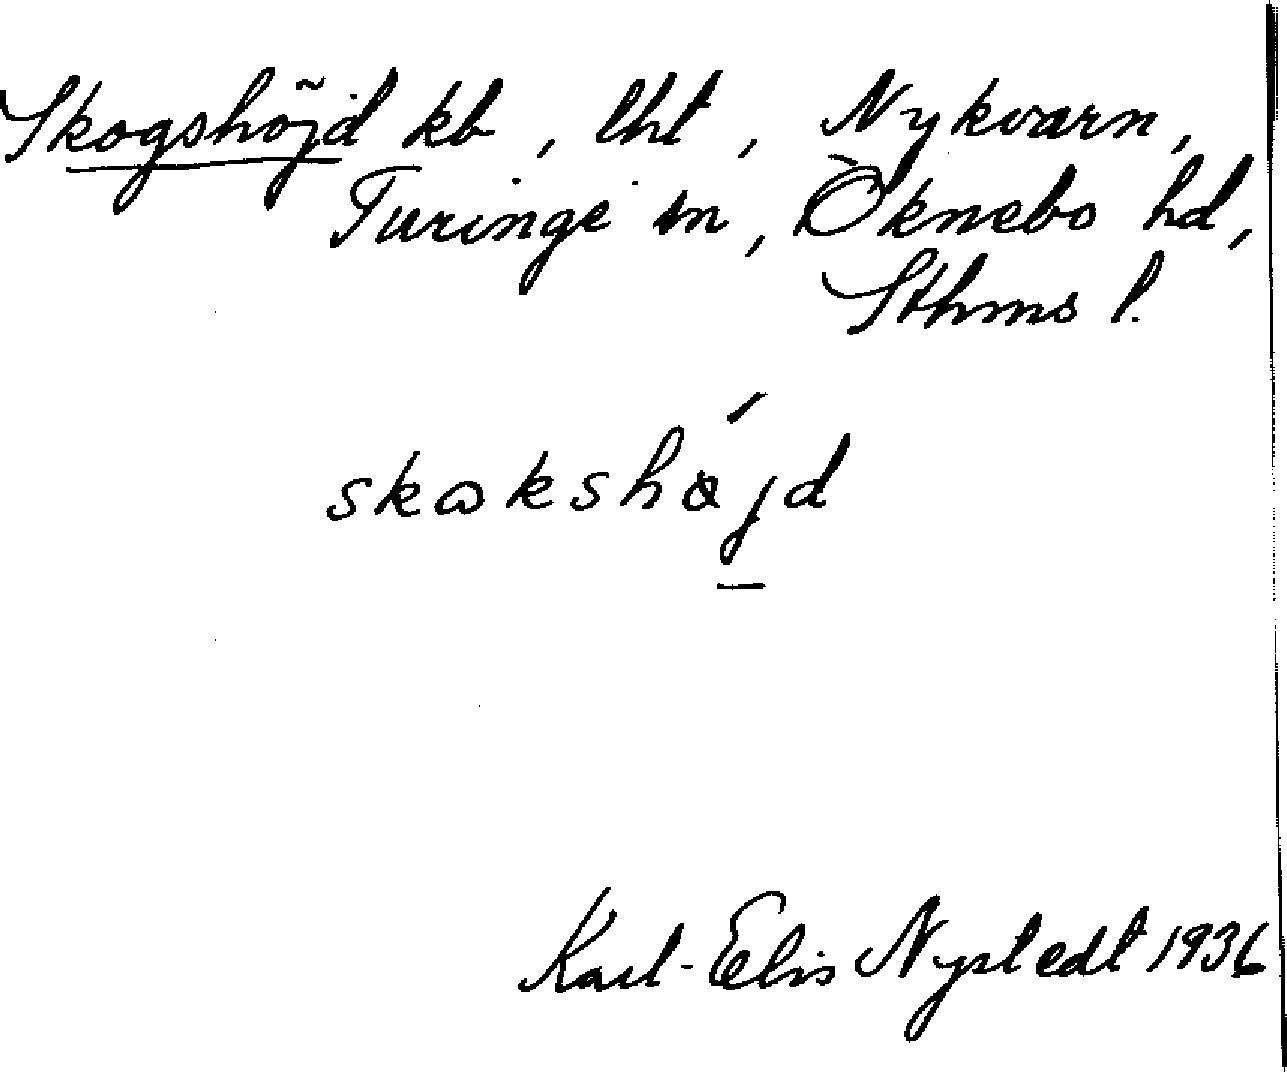 Skogshöjd kb, lht, Nykvarn,
Turinge sn, Öknebo hd,
Sthms l.
skɷkshöjd
Karl-Elis Nystedt 1936